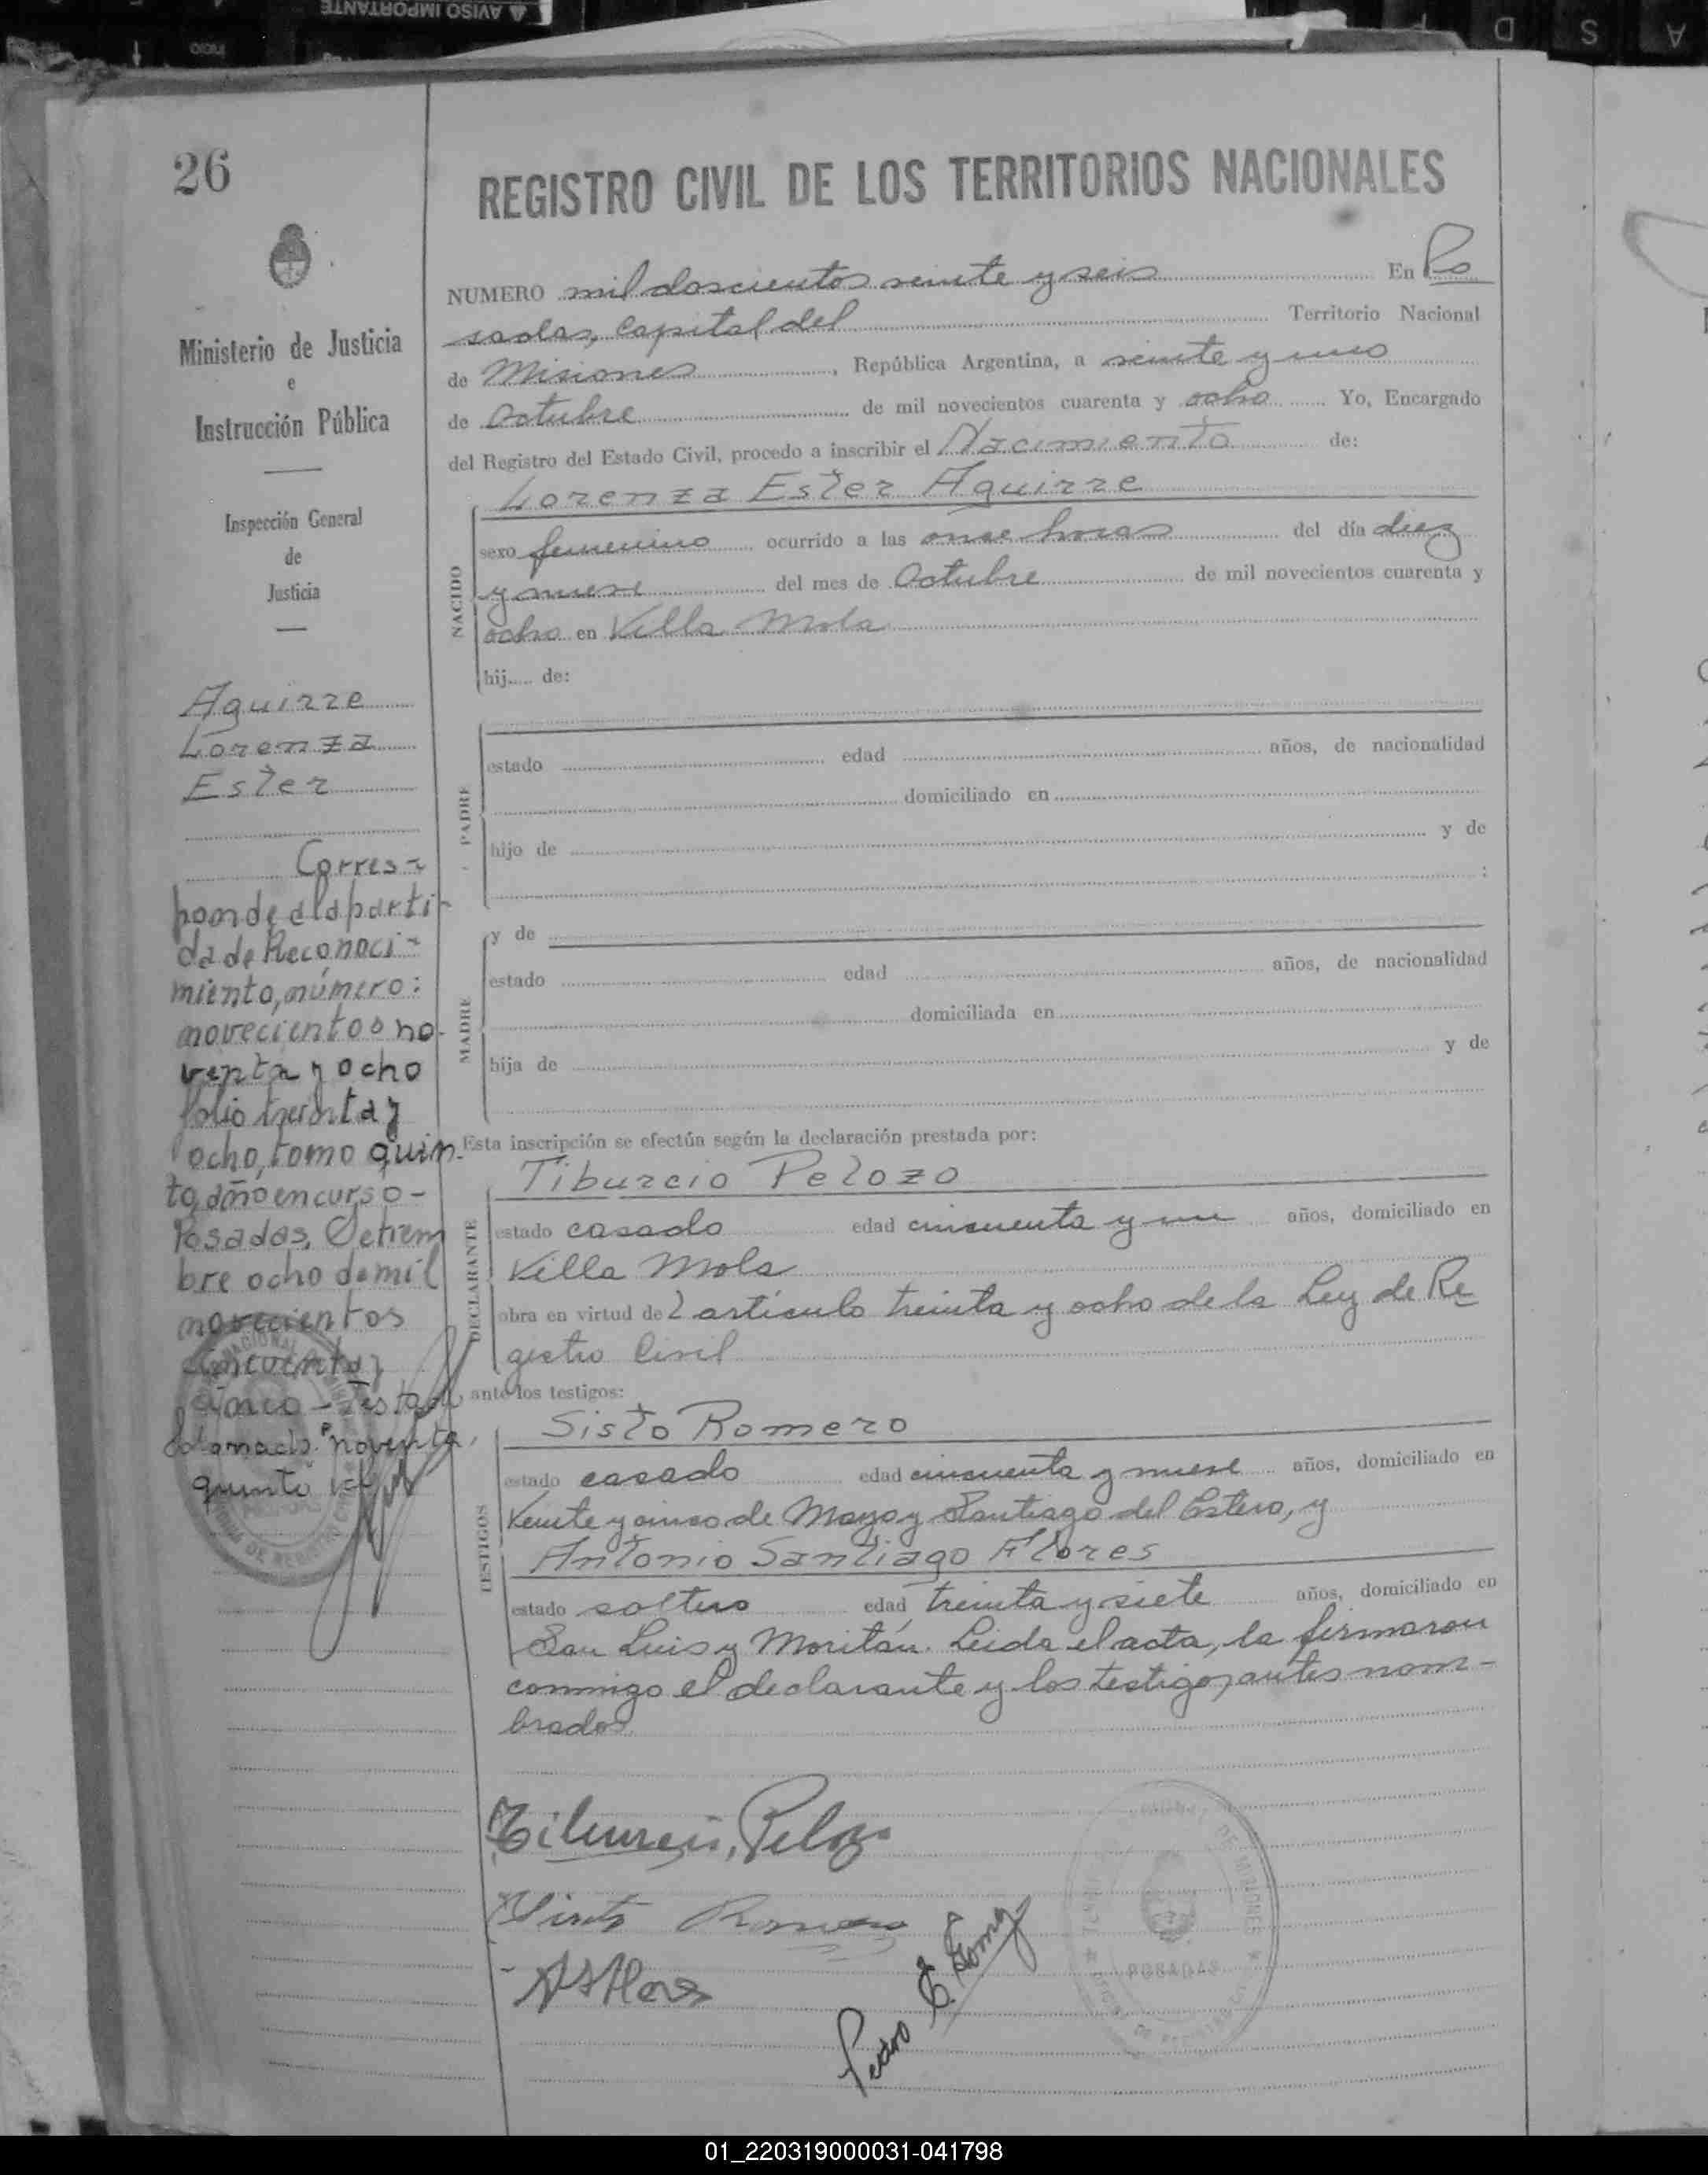 AVISO IMPORTANTE
Inicio
D S A
26
REGISTRO CIVIL DE LOS TERRITORIOS NACIONALES
Ministerio de Justicia
e
Instrucción Pública
Inspección General
de
Justicia
Aguirre
Lorenza
Ester
Corres-
ponde a la parti-
da de Reconoci-
miento, número:
novecientos no-
venta y ocho
folio treinta y
ocho, tomo quin-
to, año en curso-
Posadas, Setiem
bre ocho de mil
novecientos
cincuenta y
cinco - Testado
"noventa,
quinto"
NUMERO mil doscientos veinte y seis En Po
sadas, Capital del Territorio Nacional
de Misiones, República Argentina, a veinte y uno
de Octubre de mil novecientos cuarenta y ocho Yo, Encargado
del Registro del Estado Civil, procedo a inscribir el Nacimiento de:
Lorenza Ester Aguirre
NACIDO
sexo femenino ocurrido a las onse horas del día diez
y nueve del mes de Octubre de mil novecientos cuarenta y
ocho en Villa Mola
hij..... de:
PADRE
estado edad años, de nacionalidad
domiciliado en
hijo de y de
:
MADRE
y de
estado edad años, de nacionalidad
domiciliada en
hija de y de
Esta inscripción se efectúa según la declaración prestada por:
Tiburcio Pelozo
DECLARANTE
estado casado edad cincuenta y un años, domiciliado en
Villa Mola
obra en virtud del artículo treinta y ocho de la Ley de Re
gistro Civil
ante los testigos:
Sisto Romero
TESTIGOS
estado casado edad cincuenta y nueve años, domiciliado en
Veinte y cinco de Mayo y Santiago del Estero, y
Antonio Santiago Flores
estado soltero edad treinta y siete años, domiciliado en
San Luis y Moritán. Leida el acta, la firmaron
conmigo el declarante y los testigos antes nom-
brados
Tiburcio Pelozo
Sisto Romero
ASFlores
Pedro E. Gomez
POSADAS
01_220319000031-041798